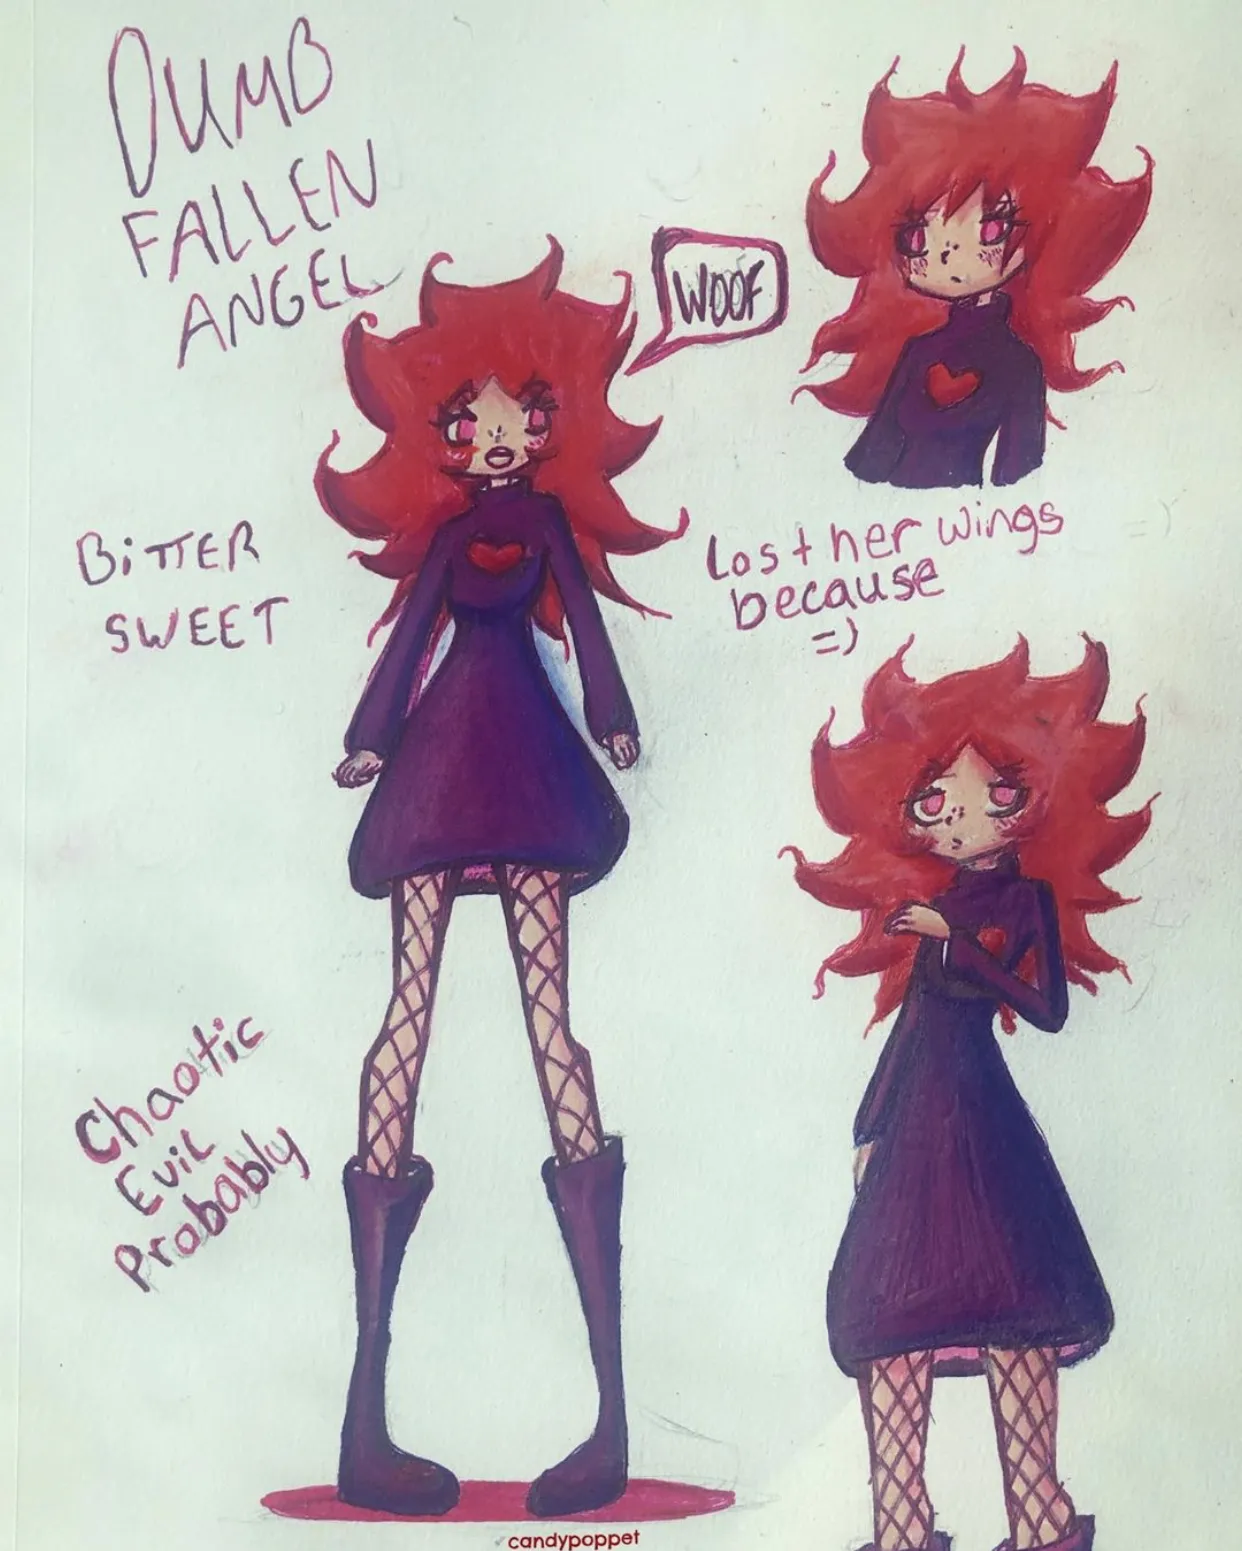 DUMB
FALLEN
ANGEL
WOOF
BiTTER
SWEET
Lost her wings
because
=)
Chaotic
EviL
Probably
candypoppet